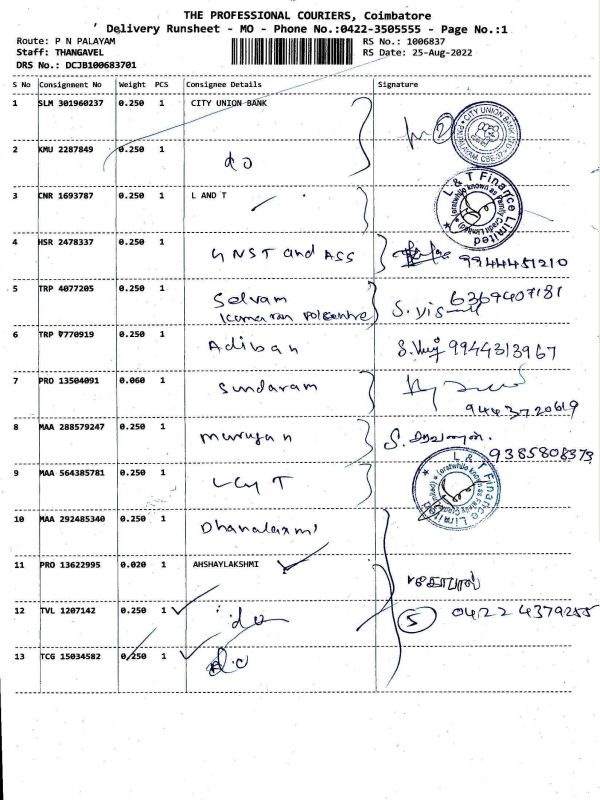 THE PROFESSIONAL COURIERS, Coimbatore
Delivery Runsheet - MO - Phone No.:0422-3505555 - Page No.:1
Route: P N PALAYAM RS No.: 1006837
Staff: THANGAVEL RS Date: 25-Aug-2022
DRS No.: DCJB100683701
S No Consignment No Weight PCS Consignee Details Signature
1 SLM 301960237 0.250 1 CITY UNION BANK
CITY UNION BANK LTD
2 KMU 2287849 0.250 1 do
3 CNR 1693787 0.250 1 L AND T
L & T Finance Limited
(erstwhile known as Family Credit Limited)
4 HSR 2478337 0.250 1 GNST and ASS 9944451210
5 TRP 4077205 0.250 1 Selvam 6369407181
6 TRP 7770919 0.250 1 Adiban 9944313967
7 PRO 13504091 0.060 1 Sundaram
9443720619
8 MAA 288579247 0.250 1 murugan
9385808373
9 MAA 564385781 0.250 1 L&T
L & T Finance Limited
(erstwhile known as Family Credit Limited)
10 MAA 292485340 0.250 1 Dhanalaxmi
11 PRO 13622995 0.020 1 AHSHAYLAKSHMI
12 TVL 1207142 0.250 1 do 5 0422 4379255
13 TCG 15034582 0.250 1 do